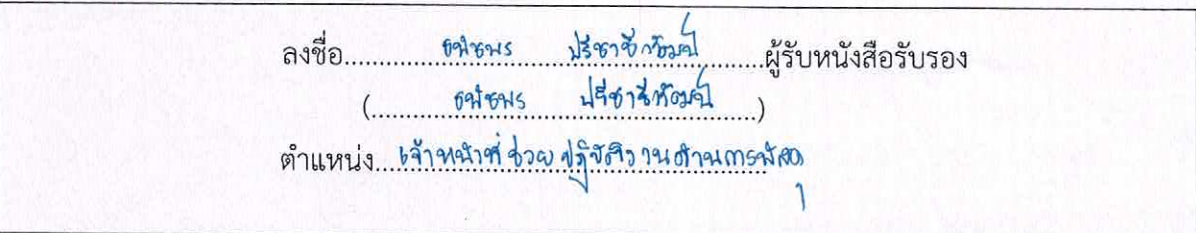 ลงชื่อ..........ธนัชพร ปรีชาชีววัฒน์..........ผู้รับหนังสือรับรอง
(..........ธนัชพร ปรีชาชีววัฒน์..........)
ตำแหน่ง...เจ้าหน้าที่ช่วยปฏิบัติงานด้านการพัสดุ